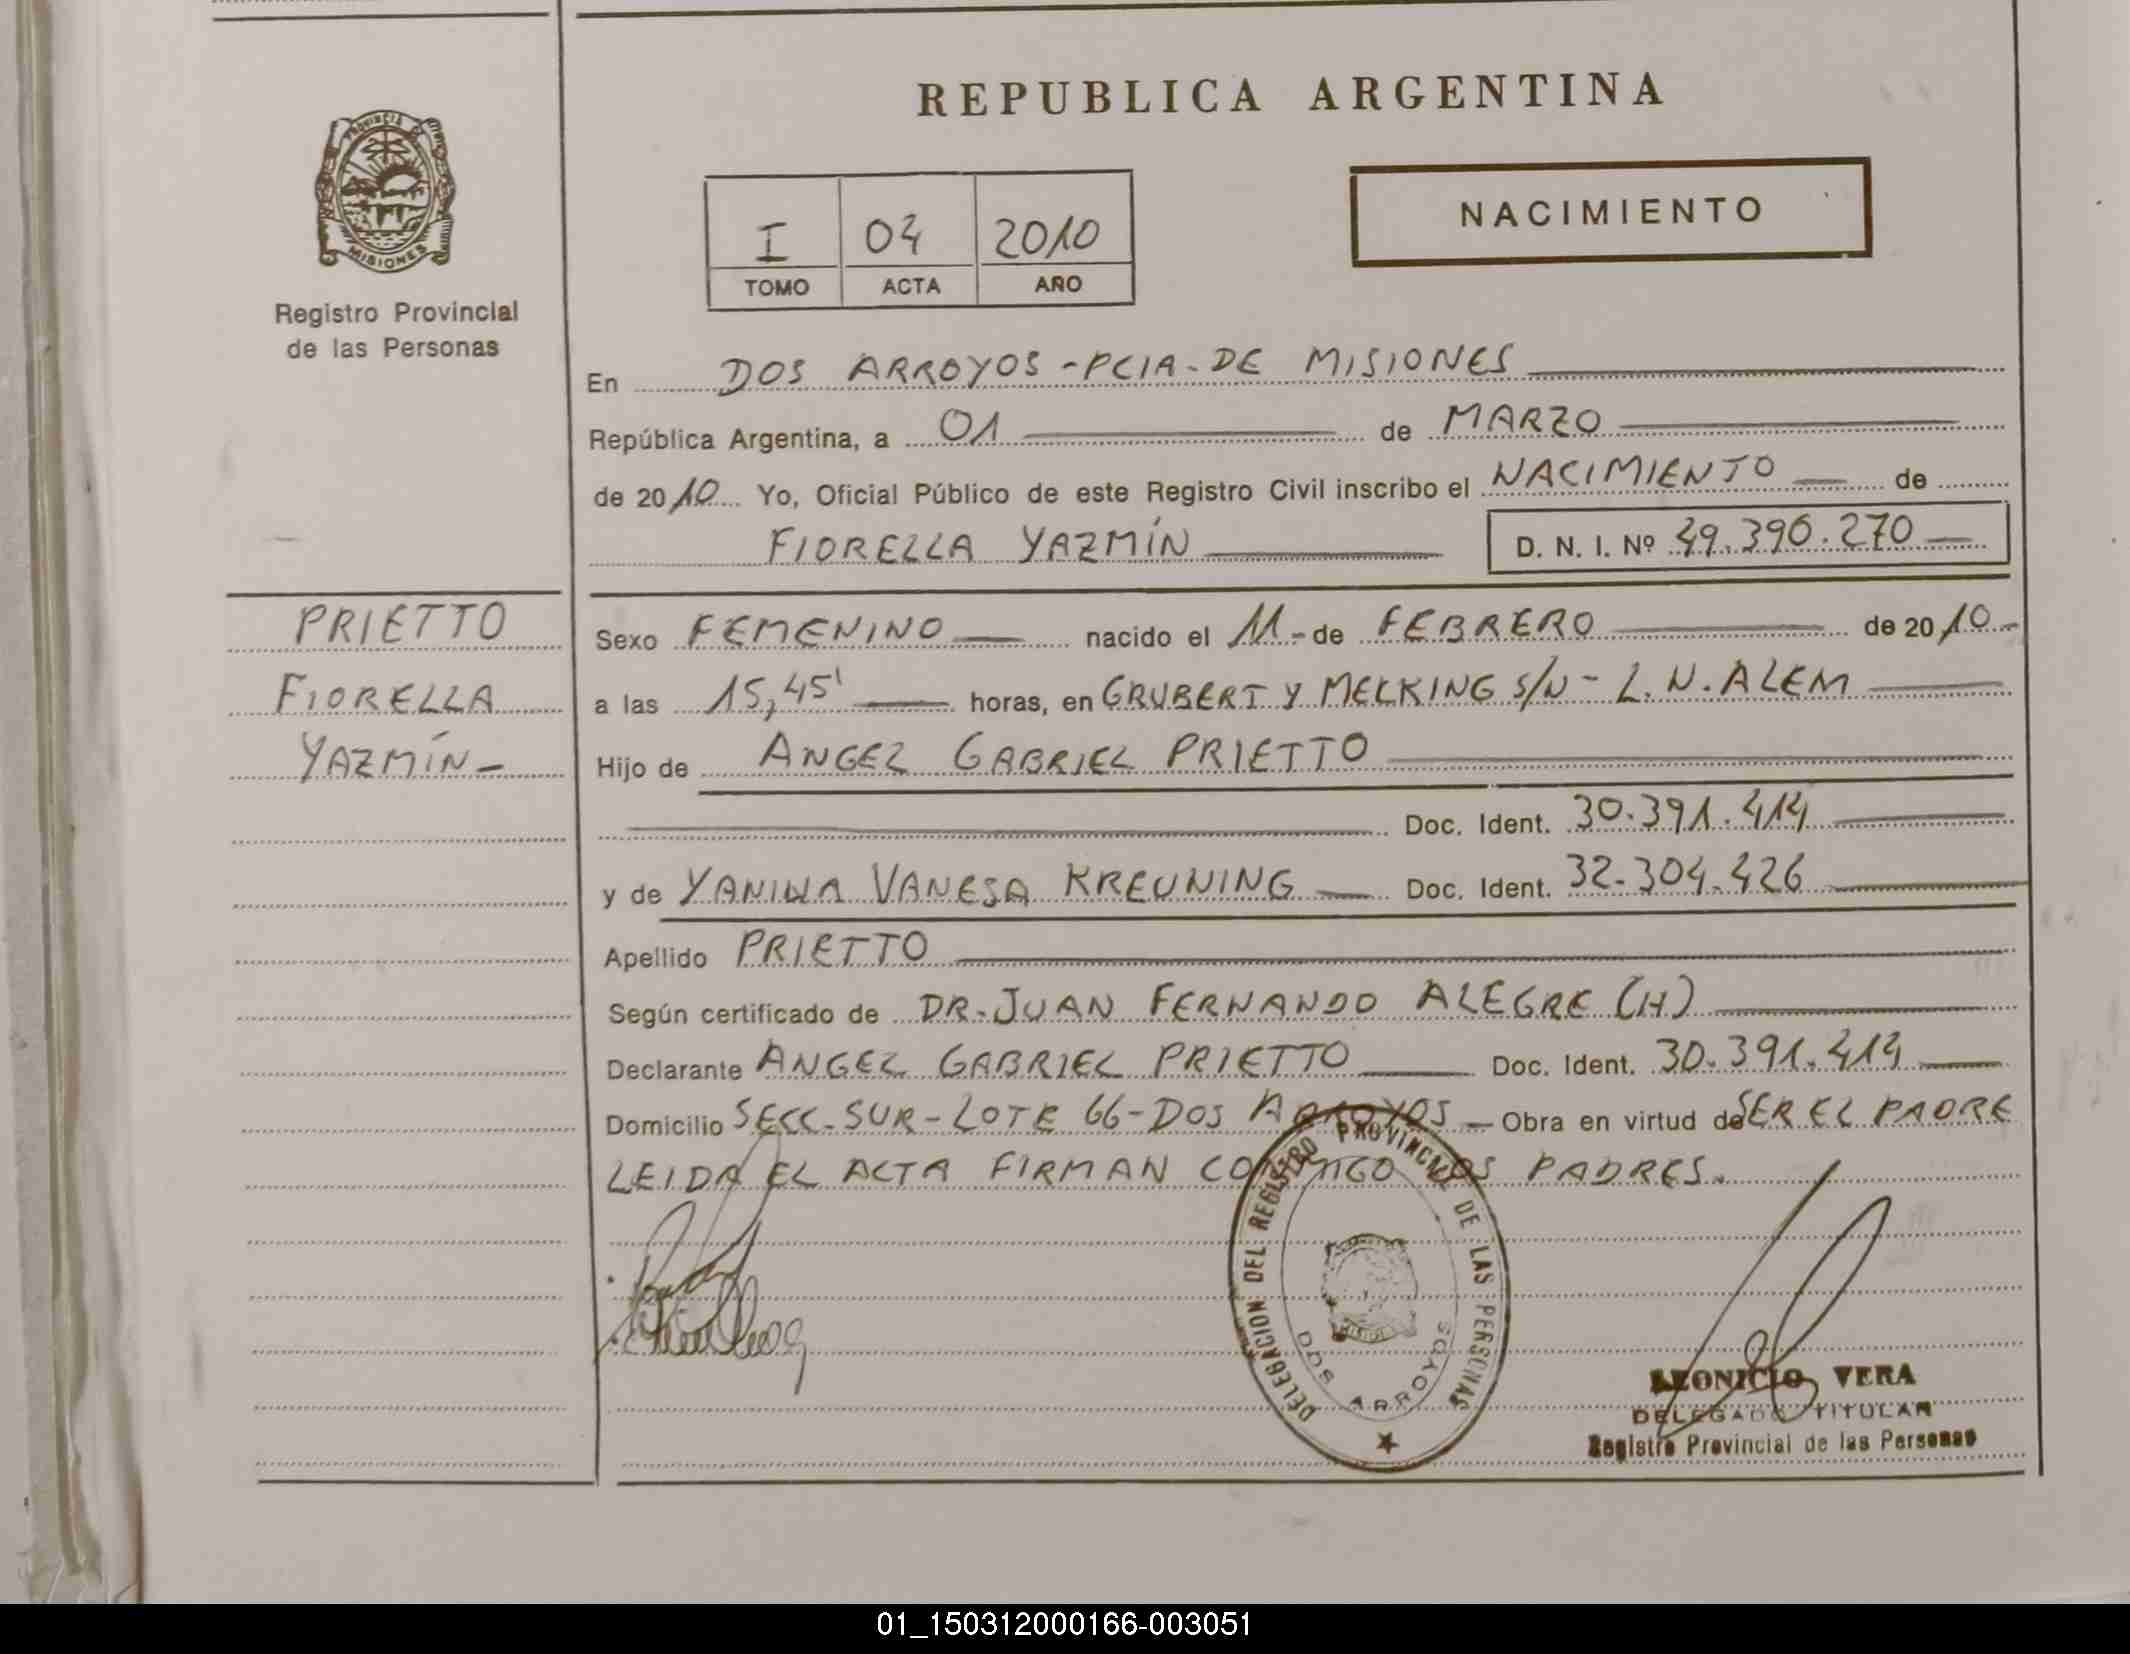 REPUBLICA ARGENTINA
PROVINCIA DE MISIONES
Registro Provincial
de las Personas
I 04 2010
TOMO ACTA AÑO
NACIMIENTO
En DOS ARROYOS - PCIA. DE MISIONES
República Argentina, a 01 de MARZO
de 2010 Yo, Oficial Público de este Registro Civil inscribo el NACIMIENTO de
FIORELLA YAZMÍN D. N. I. Nº 49.390.270
PRIETTO
FIORELLA
YAZMÍN-
Sexo FEMENINO nacido el 11-de FEBRERO de 2010
a las 15,45' horas, en GRUBERT Y MECKING S/N - L.N. ALEM
Hijo de ANGEL GABRIEL PRIETTO
Doc. Ident. 30.391.414
y de YANINA VANESA KREUNING Doc. Ident. 32.304.426
Apellido PRIETTO
Según certificado de DR. JUAN FERNANDO ALEGRE (H)
Declarante ANGEL GABRIEL PRIETTO Doc. Ident. 30.391.414
Domicilio SECC. SUR - LOTE 66 - DOS ARROYOS - Obra en virtud de SER EL PADRE
LEIDA EL ACTA FIRMAN CONMIGO LOS PADRES.
DELEGACION DEL REGISTRO PROVINCIAL DE LAS PERSONAS
DOS ARROYOS
LEONICIO VERA
DELEGADO TITULAR
Registro Provincial de las Personas
01_150312000166-003051